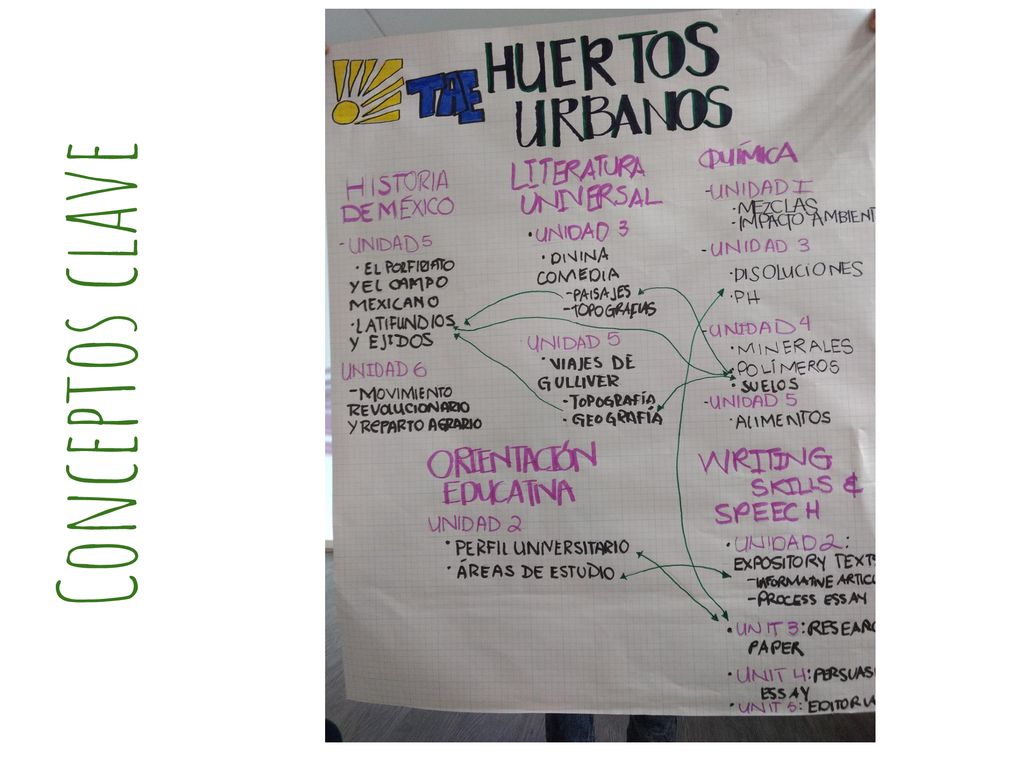 CONCEPTOS CLAVE
TAE
HUERTOS
URBANOS
HISTORIA
DE MÉXICO
- UNIDAD 5
· EL PORFIRIATO
Y EL CAMPO
MEXICANO
· LATIFUNDIOS
Y EJIDOS
UNIDAD 6
- MOVIMIENTO
REVOLUCIONARIO
Y REPARTO AGRARIO
LITERATURA
UNIVERSAL
· UNIDAD 3
· DIVINA
COMEDIA
- PAISAJES
- TOPOGRAFIAS
UNIDAD 5
· VIAJES DE
GULLIVER
- TOPOGRAFÍA
- GEOGRAFÍA
QUÍMICA
- UNIDAD I
· MEZCLAS
· IMPACTO AMBIENT
- UNIDAD 3
· DISOLUCIONES
· PH
- UNIDAD 4
· MINERALES
· POLÍMEROS
· SUELOS
- UNIDAD 5
· ALIMENTOS
ORIENTACIÓN
EDUCATIVA
UNIDAD 2
· PERFIL UNIVERSITARIO
· ÁREAS DE ESTUDIO
WRITING
SKILLS &
SPEECH
· UNIDAD 2:
EXPOSITORY TEXTS
- INFORMATIVE ARTIC
- PROCESS ESSAY
· UNIT 3: RESEARC
PAPER
· UNIT 4: PERSUAS
ESSAY
· UNIT 5: EDITORIA